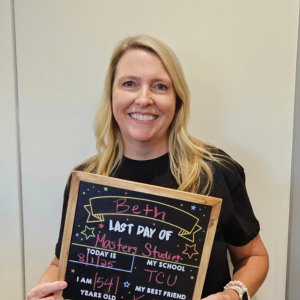 Beth
LAST DAY OF
Masters Studies
TODAY IS
8/1/25
MY SCHOOL
TCU
I AM 54
YEARS OLD
MY BEST FRIEND